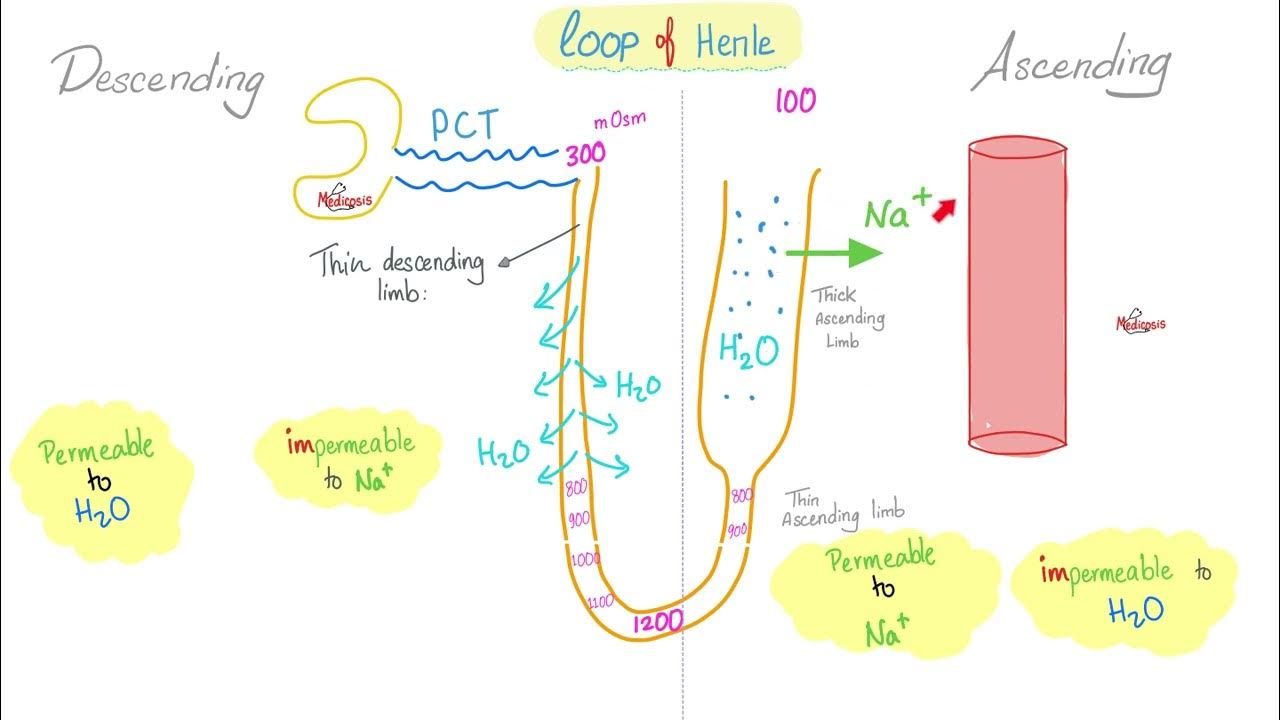 Loop of Henle
Descending
Ascending
PCT
mOsm
300
100
Medicosis
Na+
Thin descending
limb:
Thick
Ascending
Limb
H2O
Medicosis
H2O
H2O
Permeable
to
H2O
impermeable
to Na+
800
900
1000
1100
1200
800
900
Thin
Ascending limb
Permeable
to
Na+
impermeable to
H2O